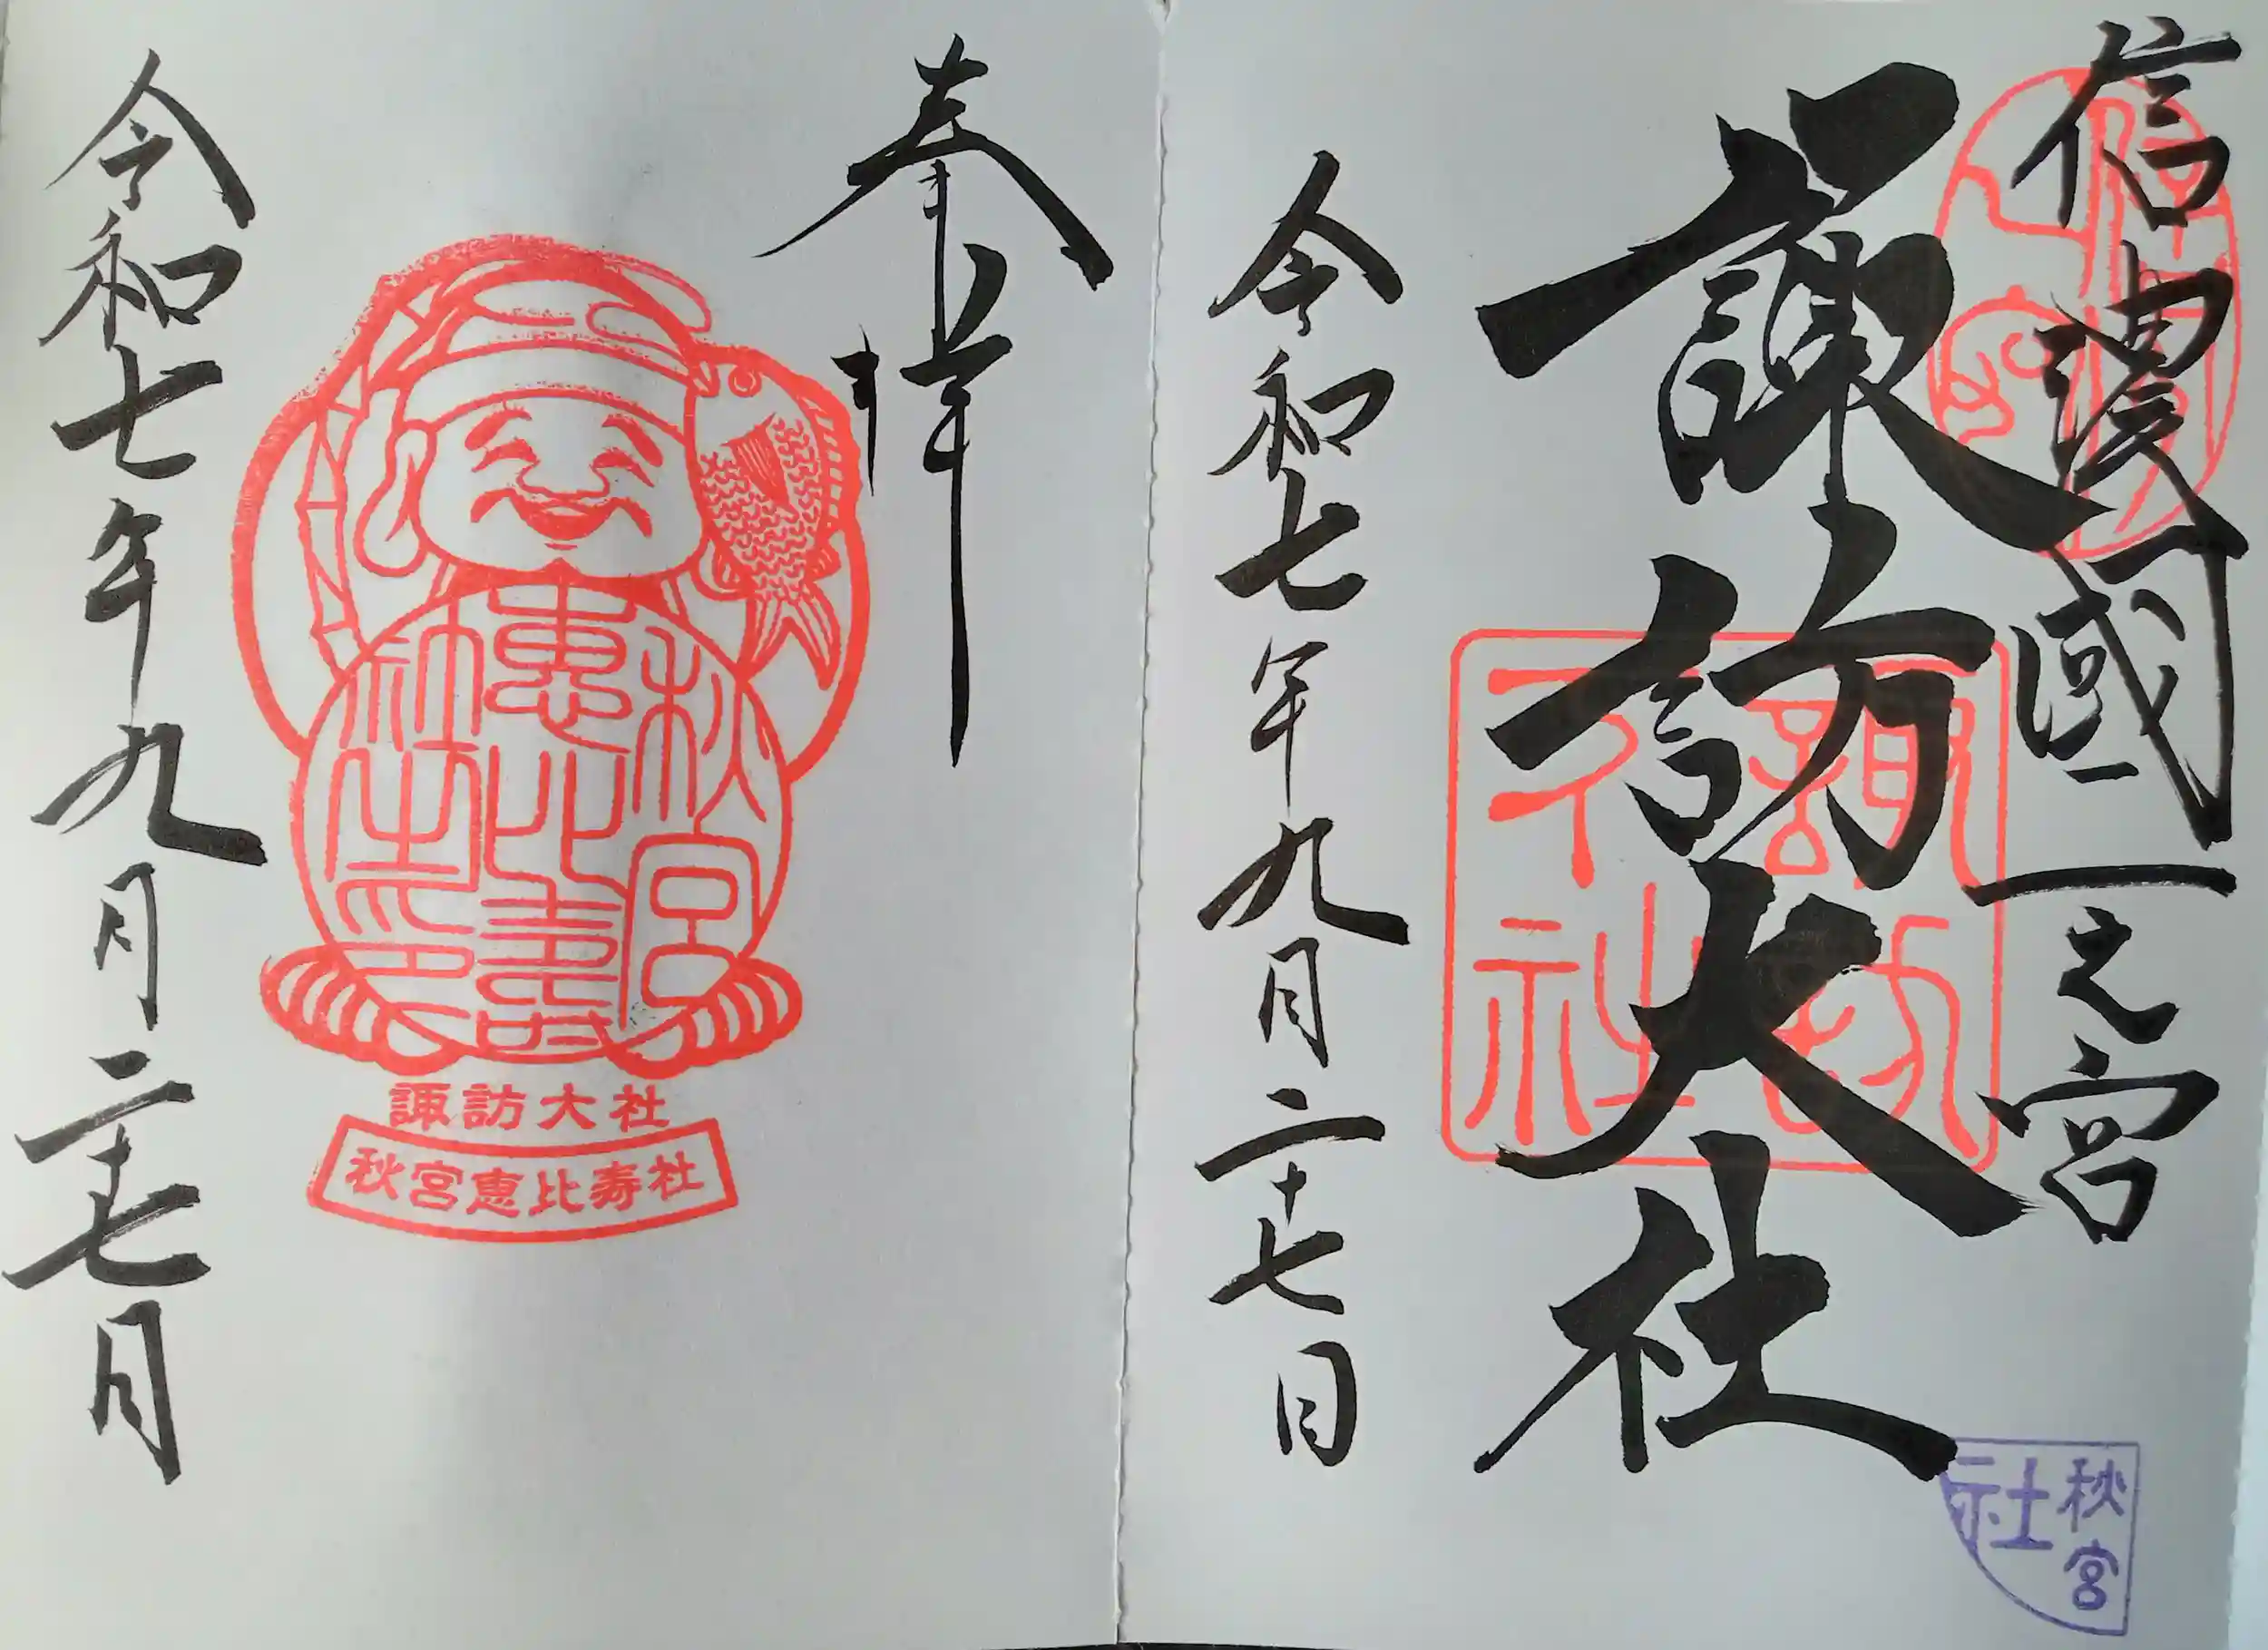 信濃國一之宮
諏訪大社
令和七年九月二十七日
秋宮
社
奉拝
秋宮
恵比寿
社之印
諏訪大社
秋宮恵比寿社
令和七年九月二十七日